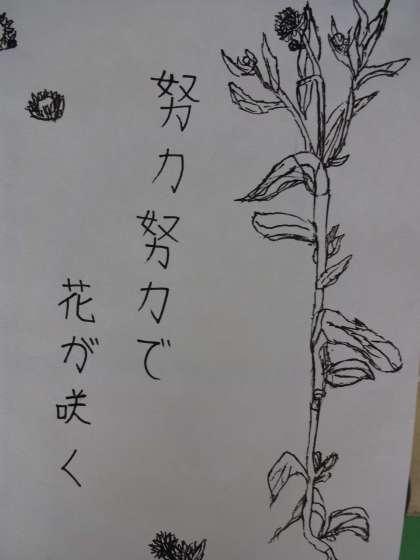 努力努力で
花が咲く